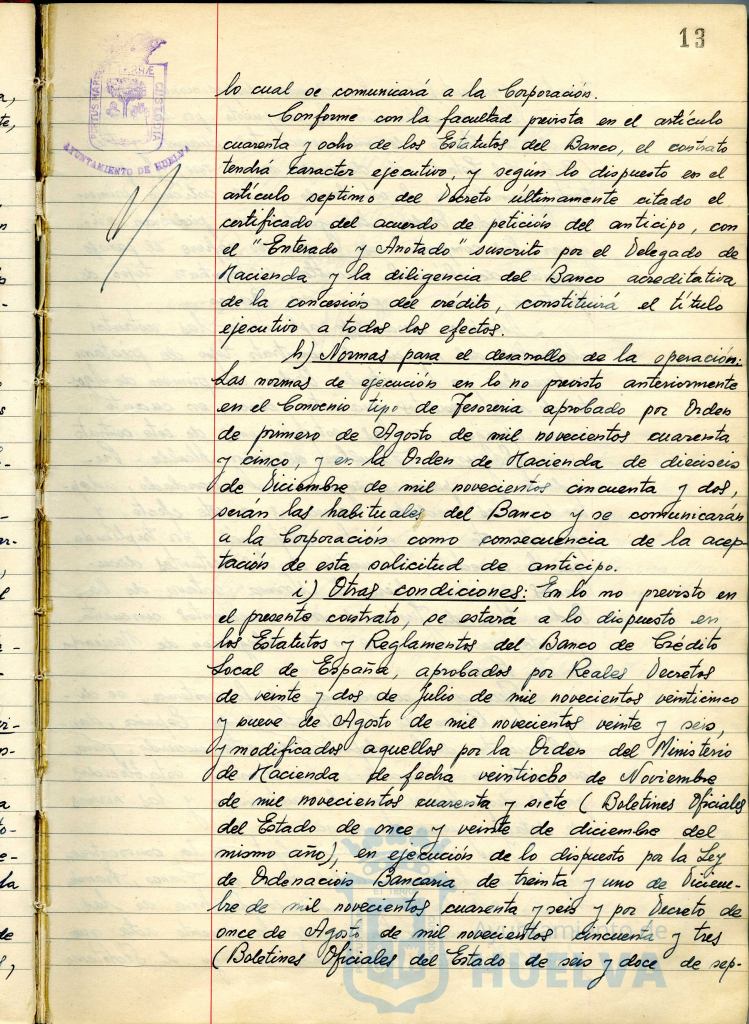 13
PORTUS MARIS ET TERRAE CUSTODIA
AYUNTAMIENTO DE HUELVA
lo cual se comunicará a la Corporación.
Conforme con la facultad prevista en el artículo
cuarenta y ocho de los Estatutos del Banco, el contrato
tendrá caracter ejecutivo, y según lo dispuesto en el
artículo septimo del Decreto últimamente citado el
certificado del acuerdo de petición del anticipo, con
el "Enterado y Anotado" suscrito por el Delegado de
Hacienda y la diligencia del Banco acreditativa
de la concesión del crédito, constituirá el título
ejecutivo a todos los efectos.
h) Normas para el desarollo de la operación:
Las normas de ejecución en lo no previsto anteriormente
en el Convenio tipo de Tesoreria aprobado por Orden
de primero de Agosto de mil novecientos cuarenta
y cinco, y en la Orden de Hacienda de dieciseis
de Diciembre de mil novecientos cincuenta y dos,
serán las habituales del Banco y se comunicarán
a la Corporación como consecuencia de la acep-
tación de esta solicitud de anticipo.
i) Otras condiciones: En lo no previsto en
el presente contrato, se estará a lo dispuesto en
los Estatutos y Reglamentos del Banco de Crédito
Local de España, aprobados por Reales Decretos
de veinte y dos de Julio de mil novecientos veinticinco
y nueve de Agosto de mil novecientos veinte y seis,
y modificados aquellos por la Orden del Ministerio
de Hacienda de fecha veintiocho de Noviembre
de mil novecientos cuarenta y siete (Boletines Oficiales
del Estado de once y veinte de diciembre del
mismo año), en ejecución de lo dispuesto por la Ley
de Ordenación Bancaria de treinta y uno de Diciem-
bre de mil novecientos cuarenta y seis y por Decreto de
once de Agosto de mil novecientos cincuenta y tres
(Boletines Oficiales del Estado de seis y doce de sep-
HUELVA